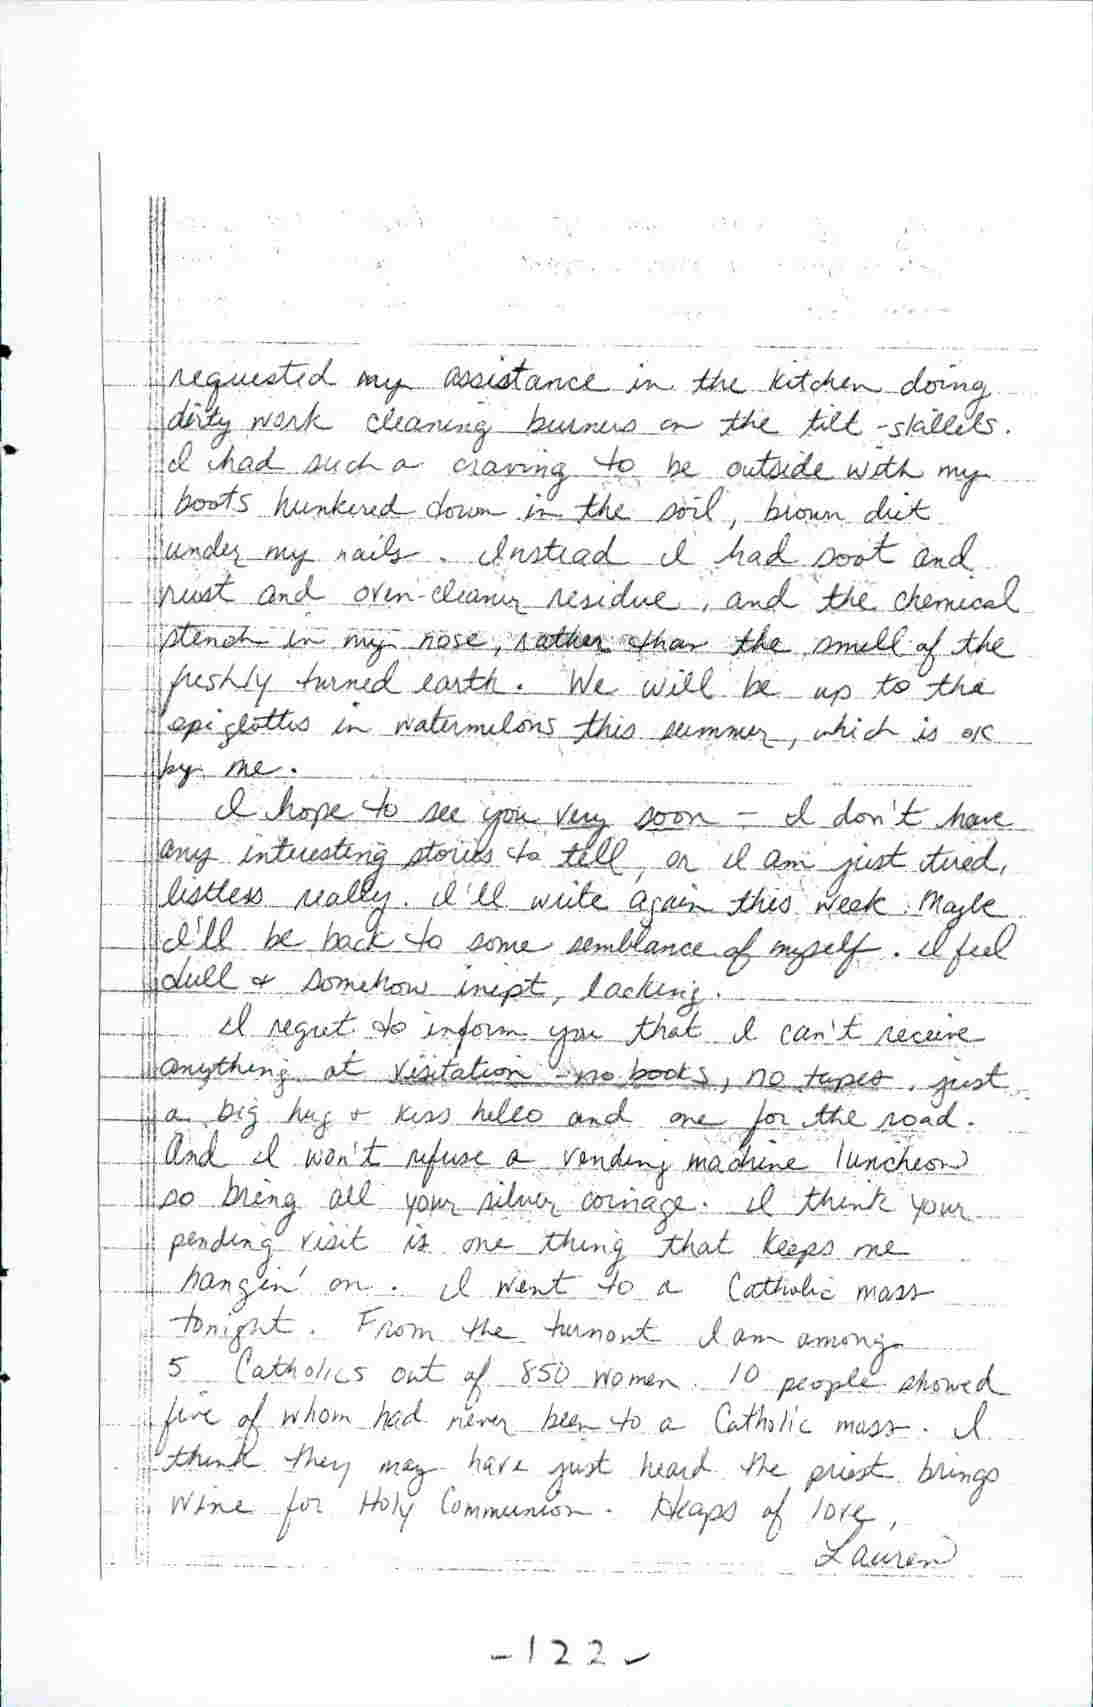 requested my assistance in the kitchen doing
dirty work cleaning burners on the tilt-skillets.
I had such a craving to be outside with my
boots hunkered down in the soil, brown dirt
under my nails. Instead I had soot and
rust and oven-cleaner residue, and the chemical
stench in my nose, rather than the smell of the
freshly turned earth. We will be up to the
epiglottis in watermelons this summer, which is OK
by me.
I hope to see you very soon - I don't have
any interesting stories to tell, or I am just tired,
listless really. I'll write again this week. Maybe
I'll be back to some semblance of myself. I feel
dull & somehow inept, lacking.
I regret to inform you that I can't receive
anything at visitation - no books, no tapes, just
a big hug & kiss hello and one for the road.
And I won't refuse a vending machine luncheon
so bring all your silver coinage. I think your
pending visit is one thing that keeps me
hangin' on. I went to a Catholic mass
tonight. From the turnout I am among
5 Catholics out of 850 women. 10 people showed
five of whom had never been to a Catholic mass. I
think they may have just heard the priest brings
wine for Holy Communion. Heaps of love,
Lauren
-122-